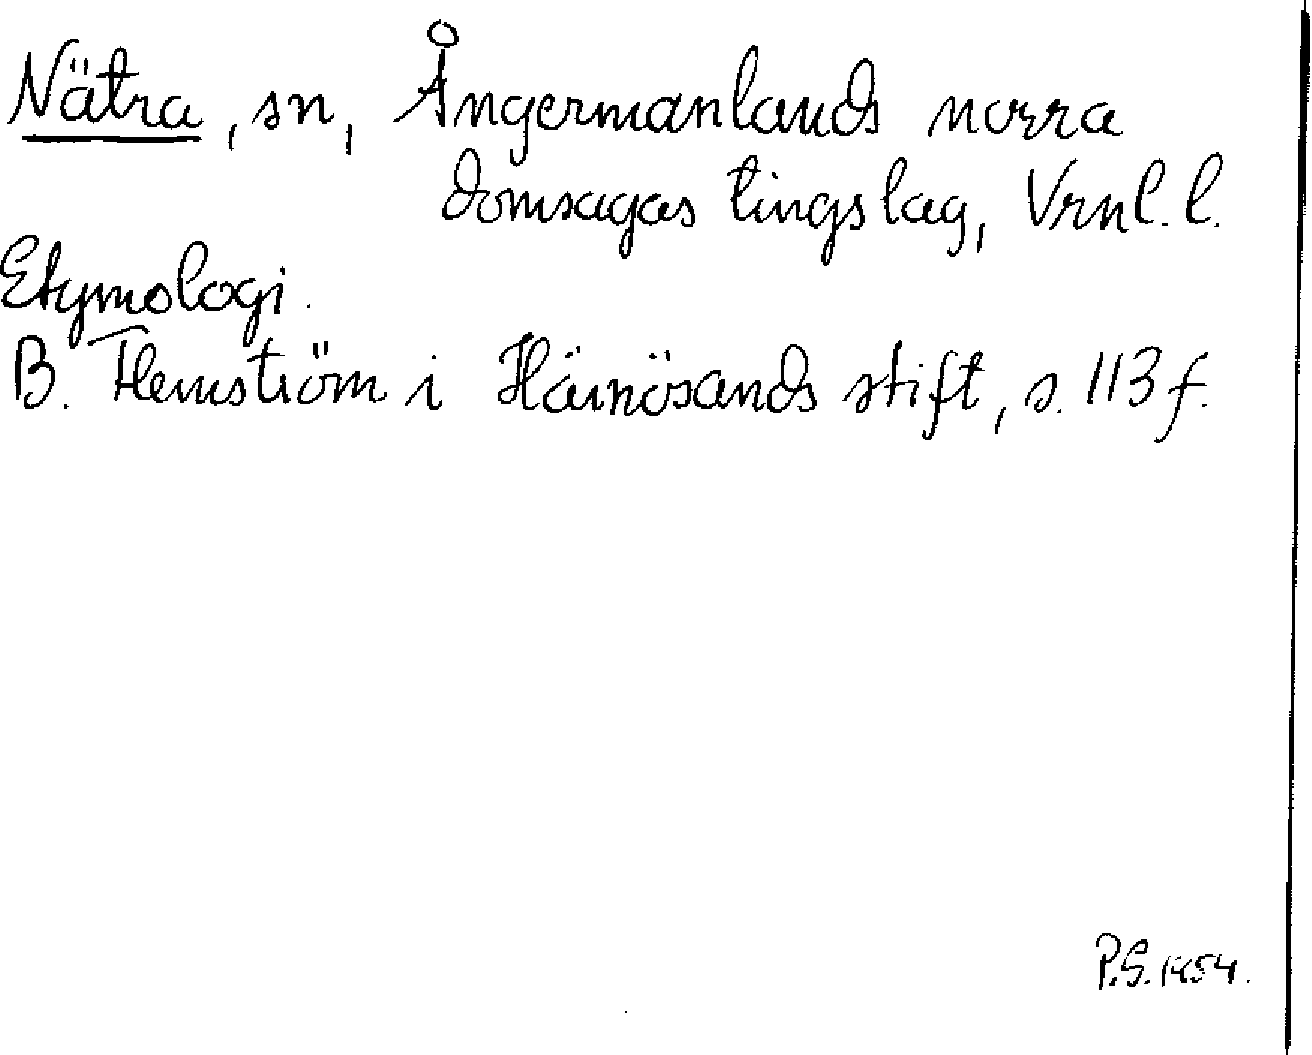 Nätra, sn, Ångermanlands norra
domsagas tingslag, Vrnl. l.
Etymologi.
B. Flemström i Härnösands stift, s. 113 f.
P.S. 1954.